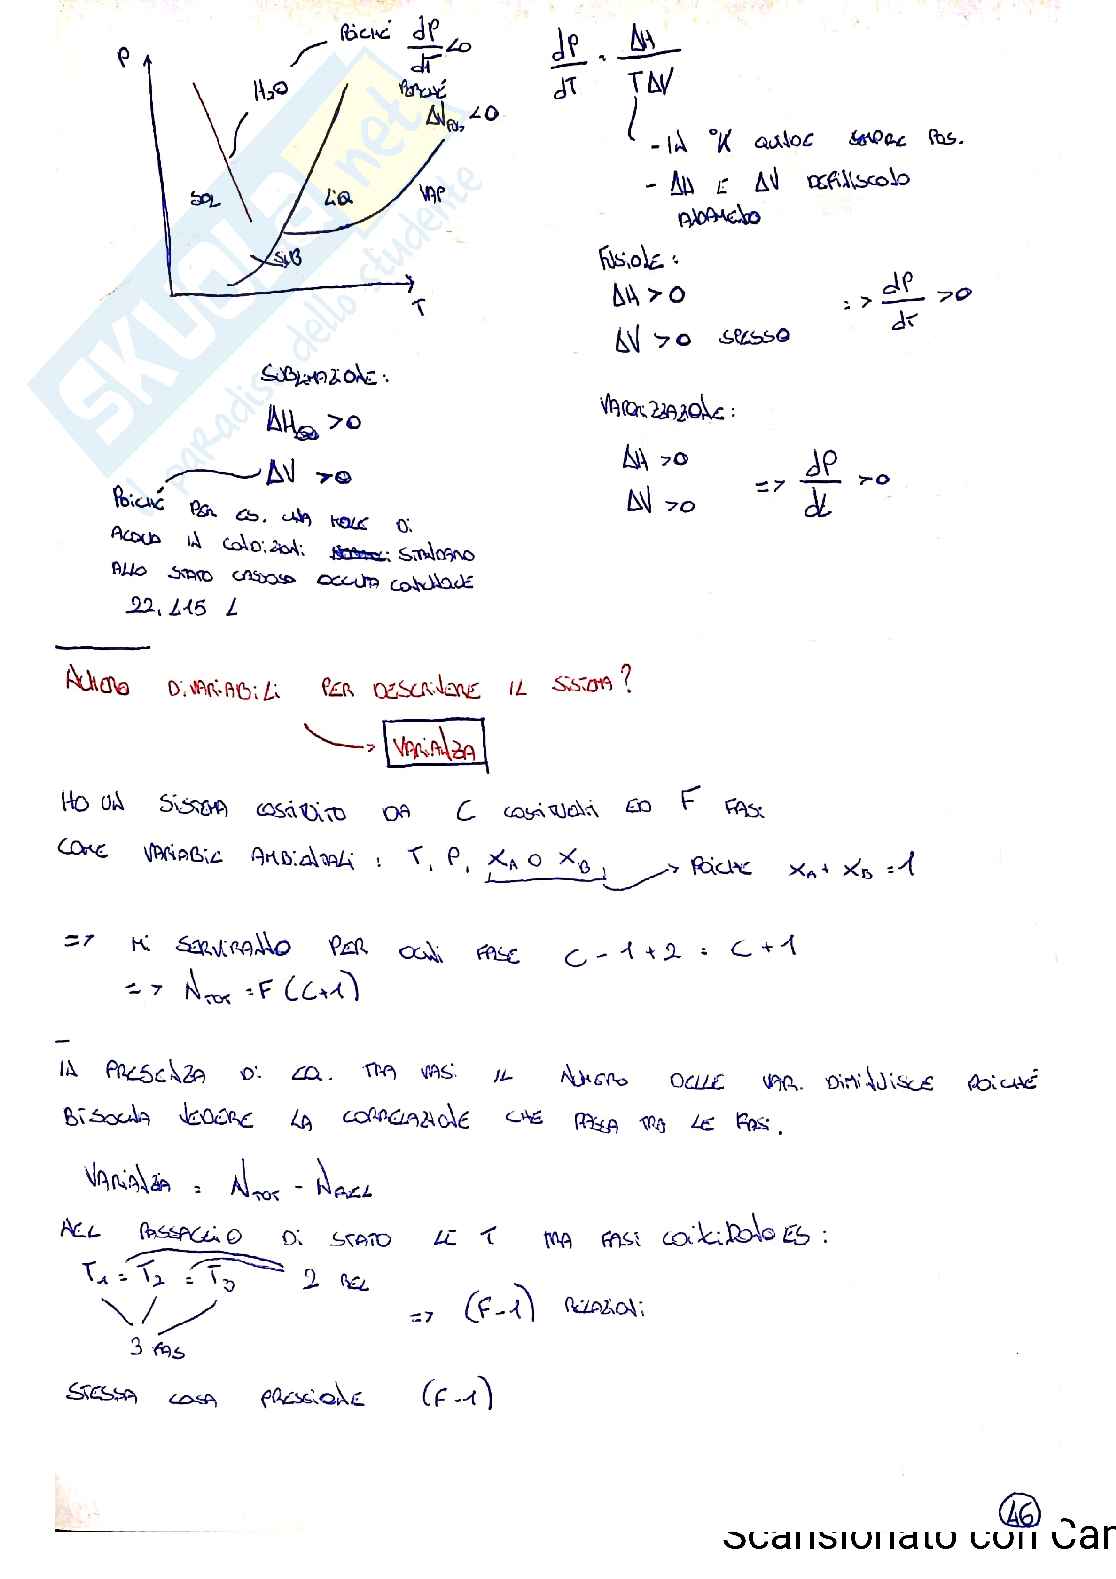 P
POICHÉ dP/dT <0
H₂O
PERCHÉ
ΔV_FUS <0
SOL
LIQ
VAP
SUB
T
dP/dT = ΔH/TΔV
- IN °K QUINDI SEMPRE POS.
- ΔH E ΔV DEFINISCONO
ANDAMENTO
FUSIONE:
ΔH >0
ΔV >0 SPESSO
=> dP/dT >0
SUBLIMAZIONE:
ΔH >0
ΔV >0
POICHÉ PER ES. UNA MOLE DI
ACQUA IN CONDIZIONI STANDARD
ALLO STATO GASSOSO OCCUPA
22,415 L
VAPORIZZAZIONE:
ΔH >0
ΔV >0
=> dP/dt >0
SKUOLA.net
il paradiso dello studente
NUMERO DI VARIABILI PER DESCRIVERE IL SISTEMA?
VARIANZA
HO UN SISTEMA COSTITUITO DA C COSTITUENTI ED F FASI
COME VARIABILI AMBIENTALI: T, P, X_A O X_B, → POICHÉ X_A + X_B = 1
=> MI SERVIRANNO PER OGNI FASE C-1+2 = C+1
=> N_TOT = F(C+1)
IN PRESENZA DI EQ. TRA FASI IL NUMERO DELLE VAR. DIMINUISCE POICHÉ
BISOGNA VEDERE LA CORRELAZIONE CHE PASSA TRA LE FASI.
VARIANZA = N_TOT - N_REL
NEL PASSAGGIO DI STATO LE T TRA FASI COINCIDONO ES:
T₁ = T₂ = T₃ 2 REL
=> (F-1) RELAZIONI
3 FAS
STESSA COSA PRESSIONE (F-1)
46
Scansionato con Cam